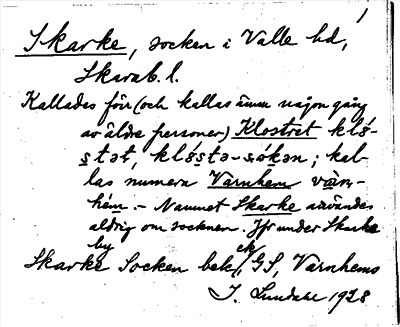 Skarke, socken i Valle hd,
Skarab. l.
Kallades förr (och kallas ännu någon gång
av äldre personer) Klostret klǿ-
stət, klǿstə-sókən; kal-
las numera Varnhem vàrn-
hém. - Namnet Skarke användes
aldrig om socknen. Jfr under Skarke
by
Skarke Socken bek, GS, Varnhems
J. Lundahl 1928